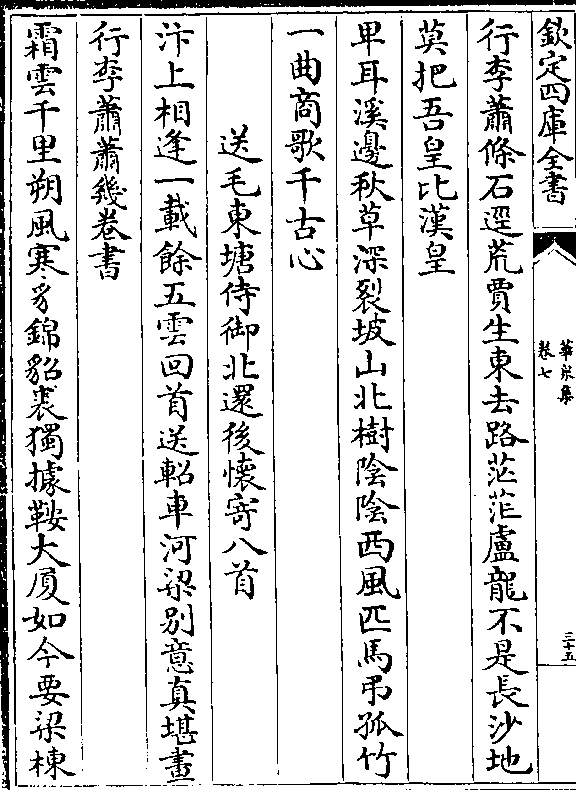 欽定四庫全書
華泉集
卷七
三十五
行李蕭條石逕荒賈生東去路茫茫盧龍不是長沙地
莫把吾皇比漢皇
卑耳溪邊秋草深裂坡山北樹陰陰西風匹馬弔孤竹
一曲商歌千古心
送毛東塘侍御北還後懷寄八首
汴上相逢一載餘五雲回首送軺車河梁别意真堪畫
行李蕭蕭幾卷書
霜雲千里朔風寒豸錦貂裘獨據鞍大厦如今要梁棟